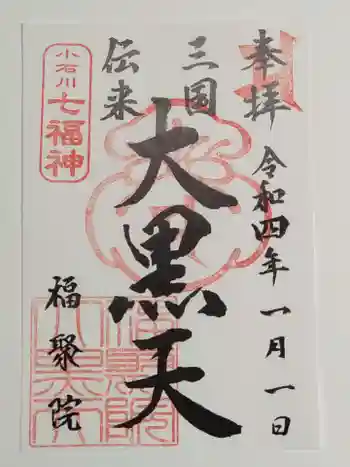 奉拝
令和四年一月一日
三国
伝来
大黒天
小石川
七福神
福聚院